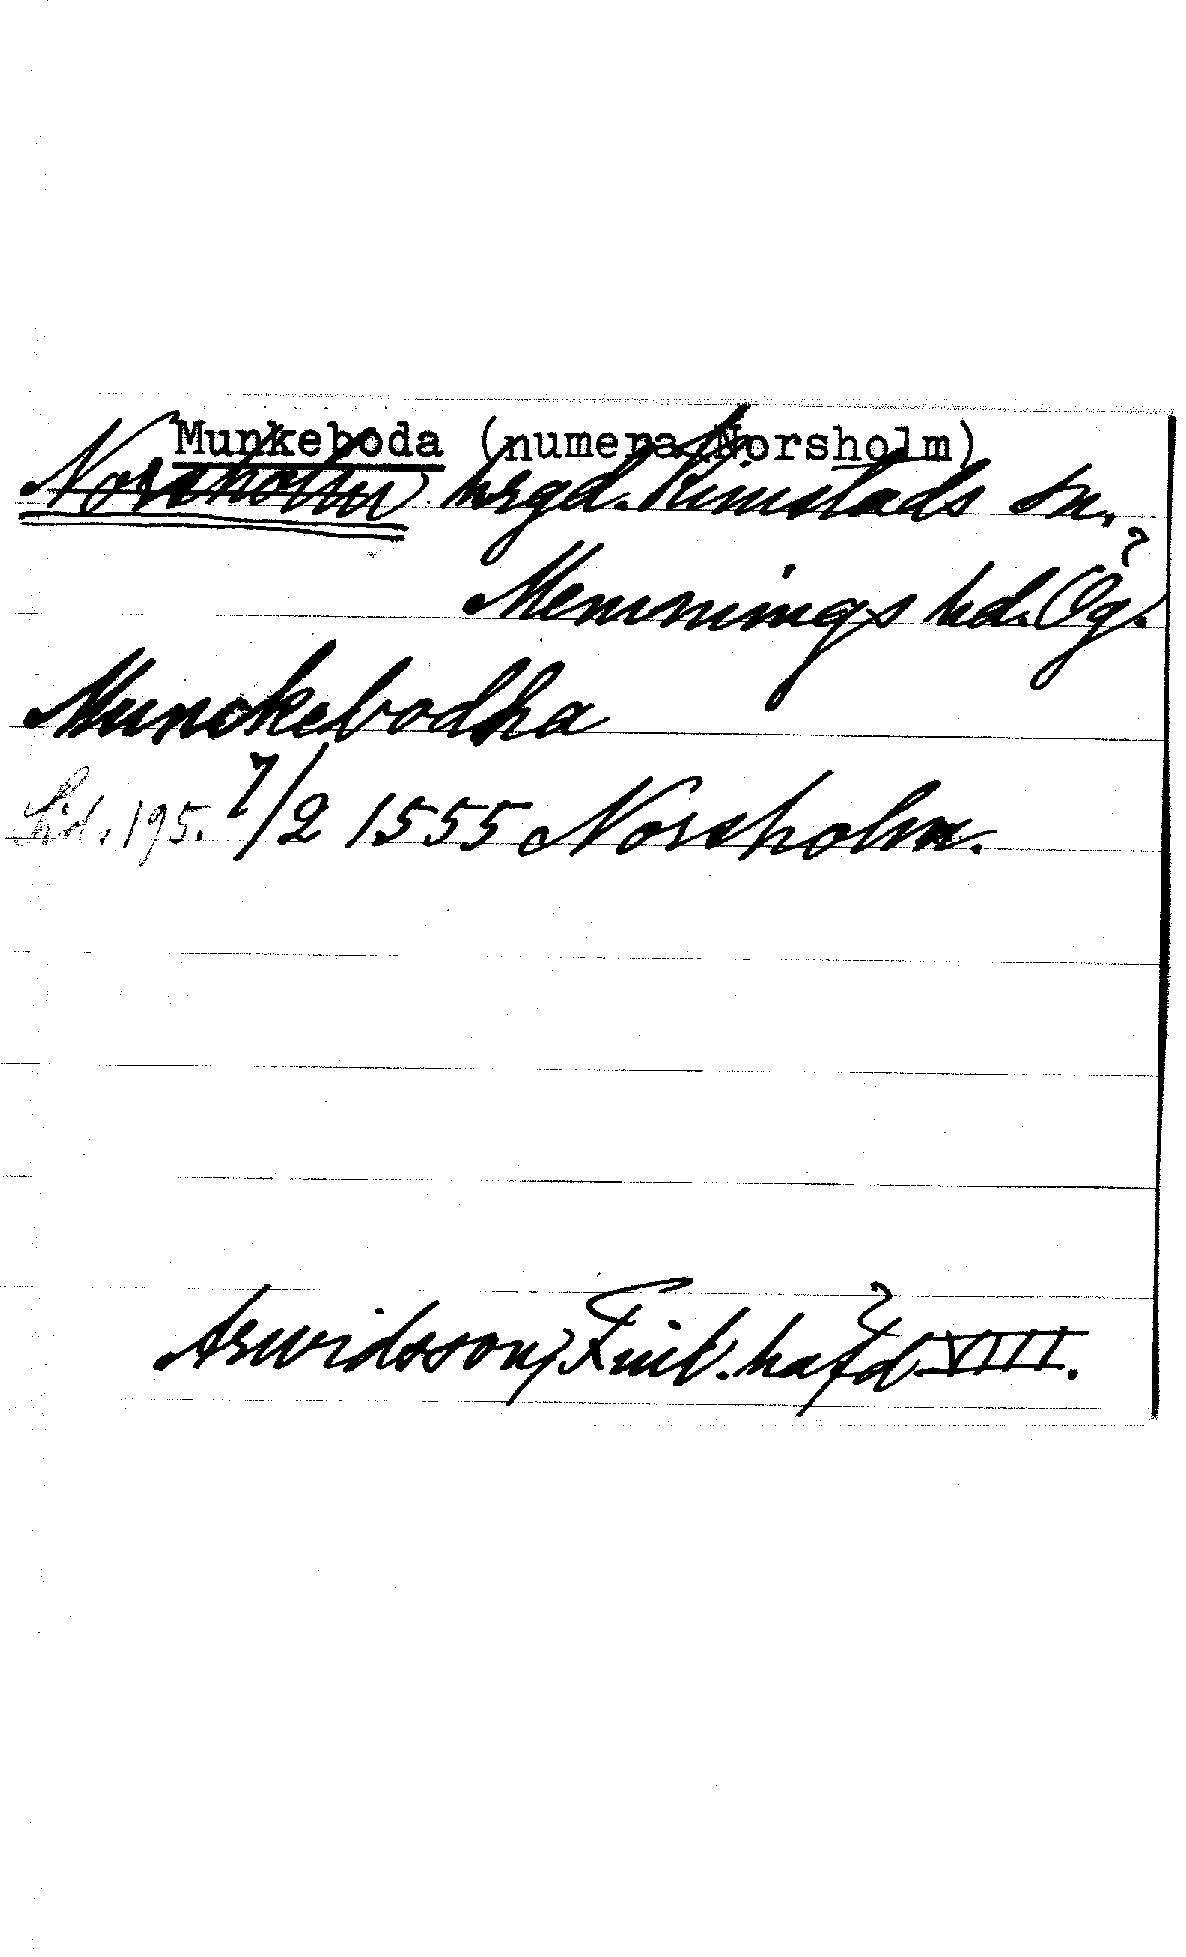 Munkeboda (numera Norsholm)
Norsholm hrgd. Kimstads sn.,
Memmings hd. Ög.
Munckebodha
Sid. 195. 7/2 1555 Norsholm.
Arwidsson, Finl. hafd. VIII.